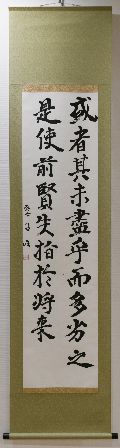 或者其未盡乎而多劣之
是使前賢失指於将来